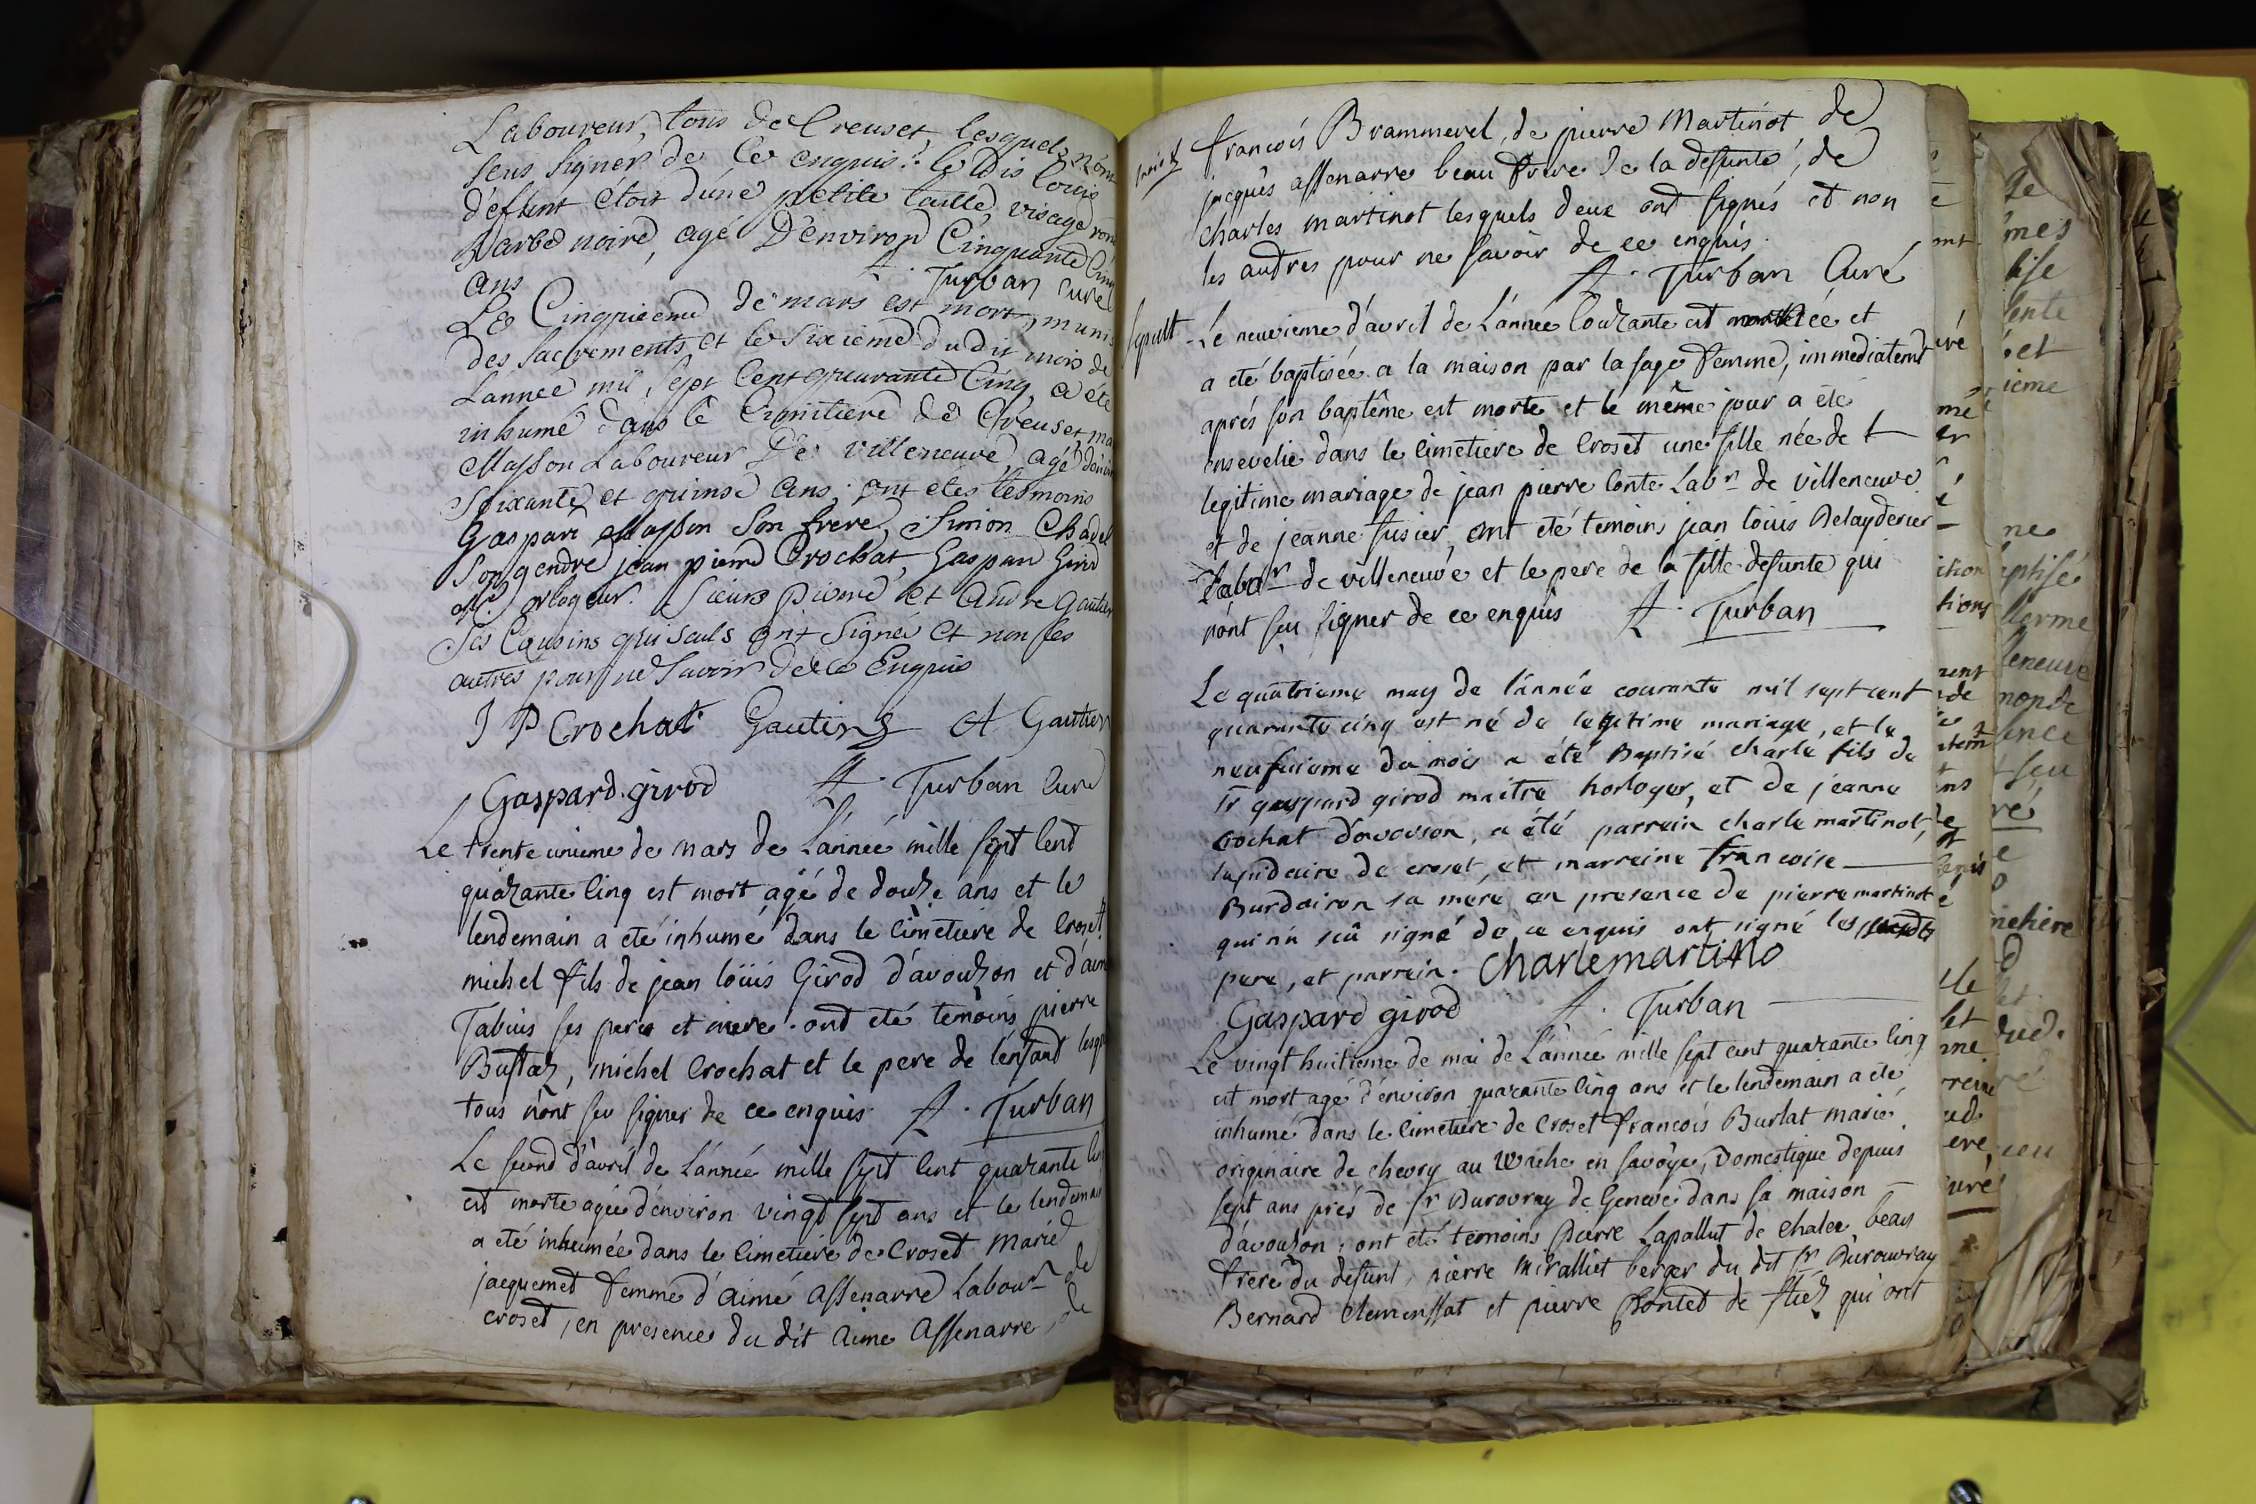 Laboureur, tous de Creuset, lesquels n'ont
seus signer de ce enquis. le dis louis
défunt etoit d'une petite taille, visage ron
Barbe noire, agé D'environ Cinquante Cinq
ans A. Turban curé
Le Cinquieme de mars est mort, munis
des sacrements et le sixieme du dit mois de
Lannee mil sept Cent quarante Cinq, a été
inhumé dans le Cimitiere de Creuset
Masson Laboureur De villeneuve, agé d'environ
soixante et quinse ans, ont etes tesmoins
Gaspard Masson son frere, Simon Chadel
son gendre jean pierre Crochat, Gaspar Girod
Me orlogeur. Sieurs pierre et Andre Gautier
ses Cousins qui seuls ont signés et non les
autres pour ne savoir de ce Enquis
J P Crochat Gautier A Gautier
Gaspard girod A. Turban Curé
Le trente unieme de mars de L'année mille sept Cent
quarante Cinq est mort agé de douze ans et le
lendemain a eté inhumé dans le Cimetiere de Croset
michel fils de jean loüis Girod d'avouzon et d'aim
Tabuis ses pere et mere. ont eté temoins pierre
Bustaz, michel Crochat et le pere de l'enfant lesqu
tous n'ont seu signer de ce enquis A. Turban
Le second d'avril de L'année mille sept Cent quarante Cin
est morte agée d'environ vingt sept ans et le lendemain
a eté inhumée dans le Cimetiere de Croset Marie
jacquemet femme d'aimé Assenarre Labour de
croset, en presence du dit Aimé Assenarre, de
francois Brammerel, de pierre Martinot de
jacques assenarre beau frere de la defunte, de
charles martinot lesquels deux ont signés et non
les autres pour ne savoir de ce enquis.
A. Turban Curé
sepult - Le neuvieme d'avril de L'année Courante est née et
a eté baptisée a la maison par la sage femme, immediatemt
aprés son baptême est morte et le même jour a eté
ensevelie dans le Cimetiere de Croset une fille née de
legitime mariage de jean pierre Conte Labr de villeneuve
et de jeanne fusier, ont eté temoins jean loüis Delayderier
Labr de villeneuve et le pere de la fille defunte qui
n'ont seu signer de ce enquis A. Turban
Le quatrieme may de l'année courante mil sept cent
quarante cinq est né de legitime mariage, et le
neufuieme du mois a été Baptisé charle fils de
sr gaspard girod maitre horloger, et de jeanne
crochat d'avouson, a été parrain charle martinot,
lapidaire de croset, et marreine francoise
Burdairon sa mere en presence de pierre martinot
qui n'a scû signé de ce enquis ont signé les
pere, et parrain. charlemartino
Gaspard girod A. Turban
Le vingt huitieme de mai de L'année mille sept cent quarante Cinq
est mort agé d'environ quarante Cinq ans et le lendemain a eté
inhumé dans le Cimetiere de Croset francois Burlat marié
originaire de chevry au en savoye, Domestique depuis
sept ans prés de sr Durouvray de Geneve dans sa maison
d'avouzon, ont eté temoins pierre Lapallut de chalex beau
frere du defunt, pierre Miralliet berger du dit sr Durouvray
Bernard Clemenssat et pierre Pontet de qui ont